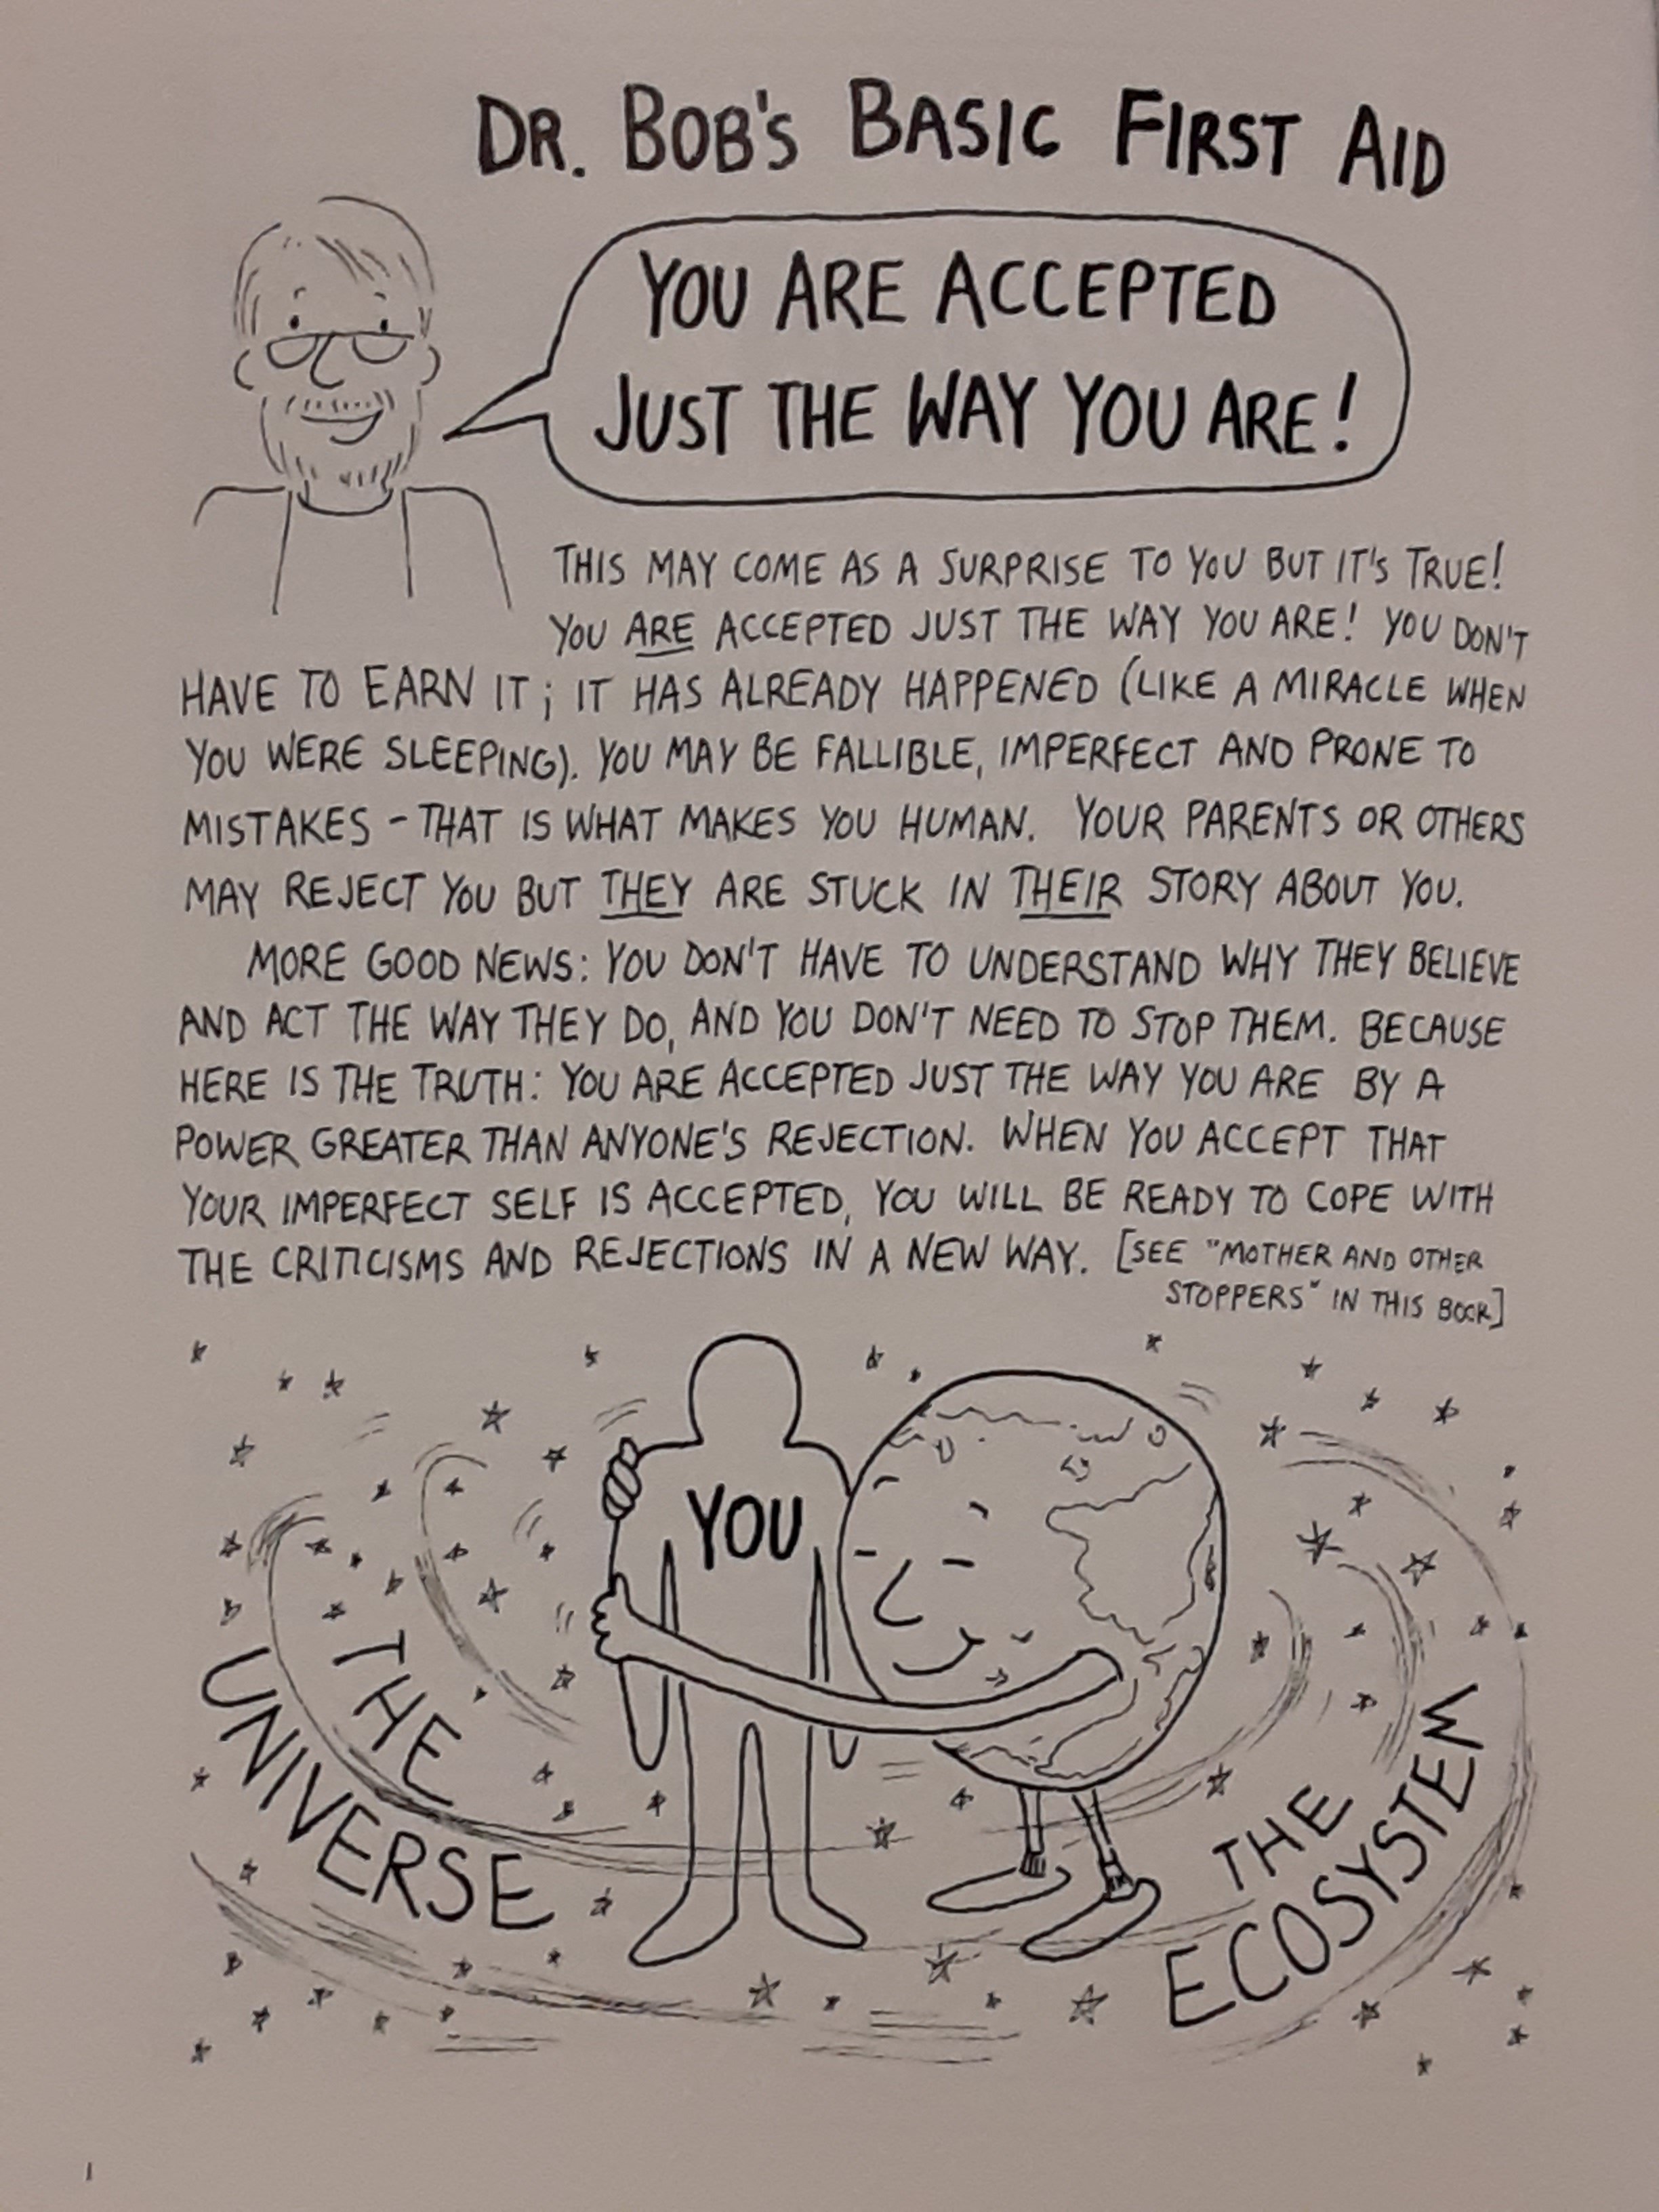 DR. BOB'S BASIC FIRST AID
YOU ARE ACCEPTED
JUST THE WAY YOU ARE!
THIS MAY COME AS A SURPRISE TO YOU BUT IT'S TRUE!
YOU ARE ACCEPTED JUST THE WAY YOU ARE! YOU DON'T
HAVE TO EARN IT; IT HAS ALREADY HAPPENED (LIKE A MIRACLE WHEN
YOU WERE SLEEPING). YOU MAY BE FALLIBLE, IMPERFECT AND PRONE TO
MISTAKES - THAT IS WHAT MAKES YOU HUMAN. YOUR PARENTS OR OTHERS
MAY REJECT YOU BUT THEY ARE STUCK IN THEIR STORY ABOUT YOU.
MORE GOOD NEWS: YOU DON'T HAVE TO UNDERSTAND WHY THEY BELIEVE
AND ACT THE WAY THEY DO, AND YOU DON'T NEED TO STOP THEM. BECAUSE
HERE IS THE TRUTH: YOU ARE ACCEPTED JUST THE WAY YOU ARE BY A
POWER GREATER THAN ANYONE'S REJECTION. WHEN YOU ACCEPT THAT
YOUR IMPERFECT SELF IS ACCEPTED, YOU WILL BE READY TO COPE WITH
THE CRITICISMS AND REJECTIONS IN A NEW WAY. [SEE "MOTHER AND OTHER
STOPPERS" IN THIS BOOK]
YOU
THE
UNIVERSE
THE
ECOSYSTEM
1